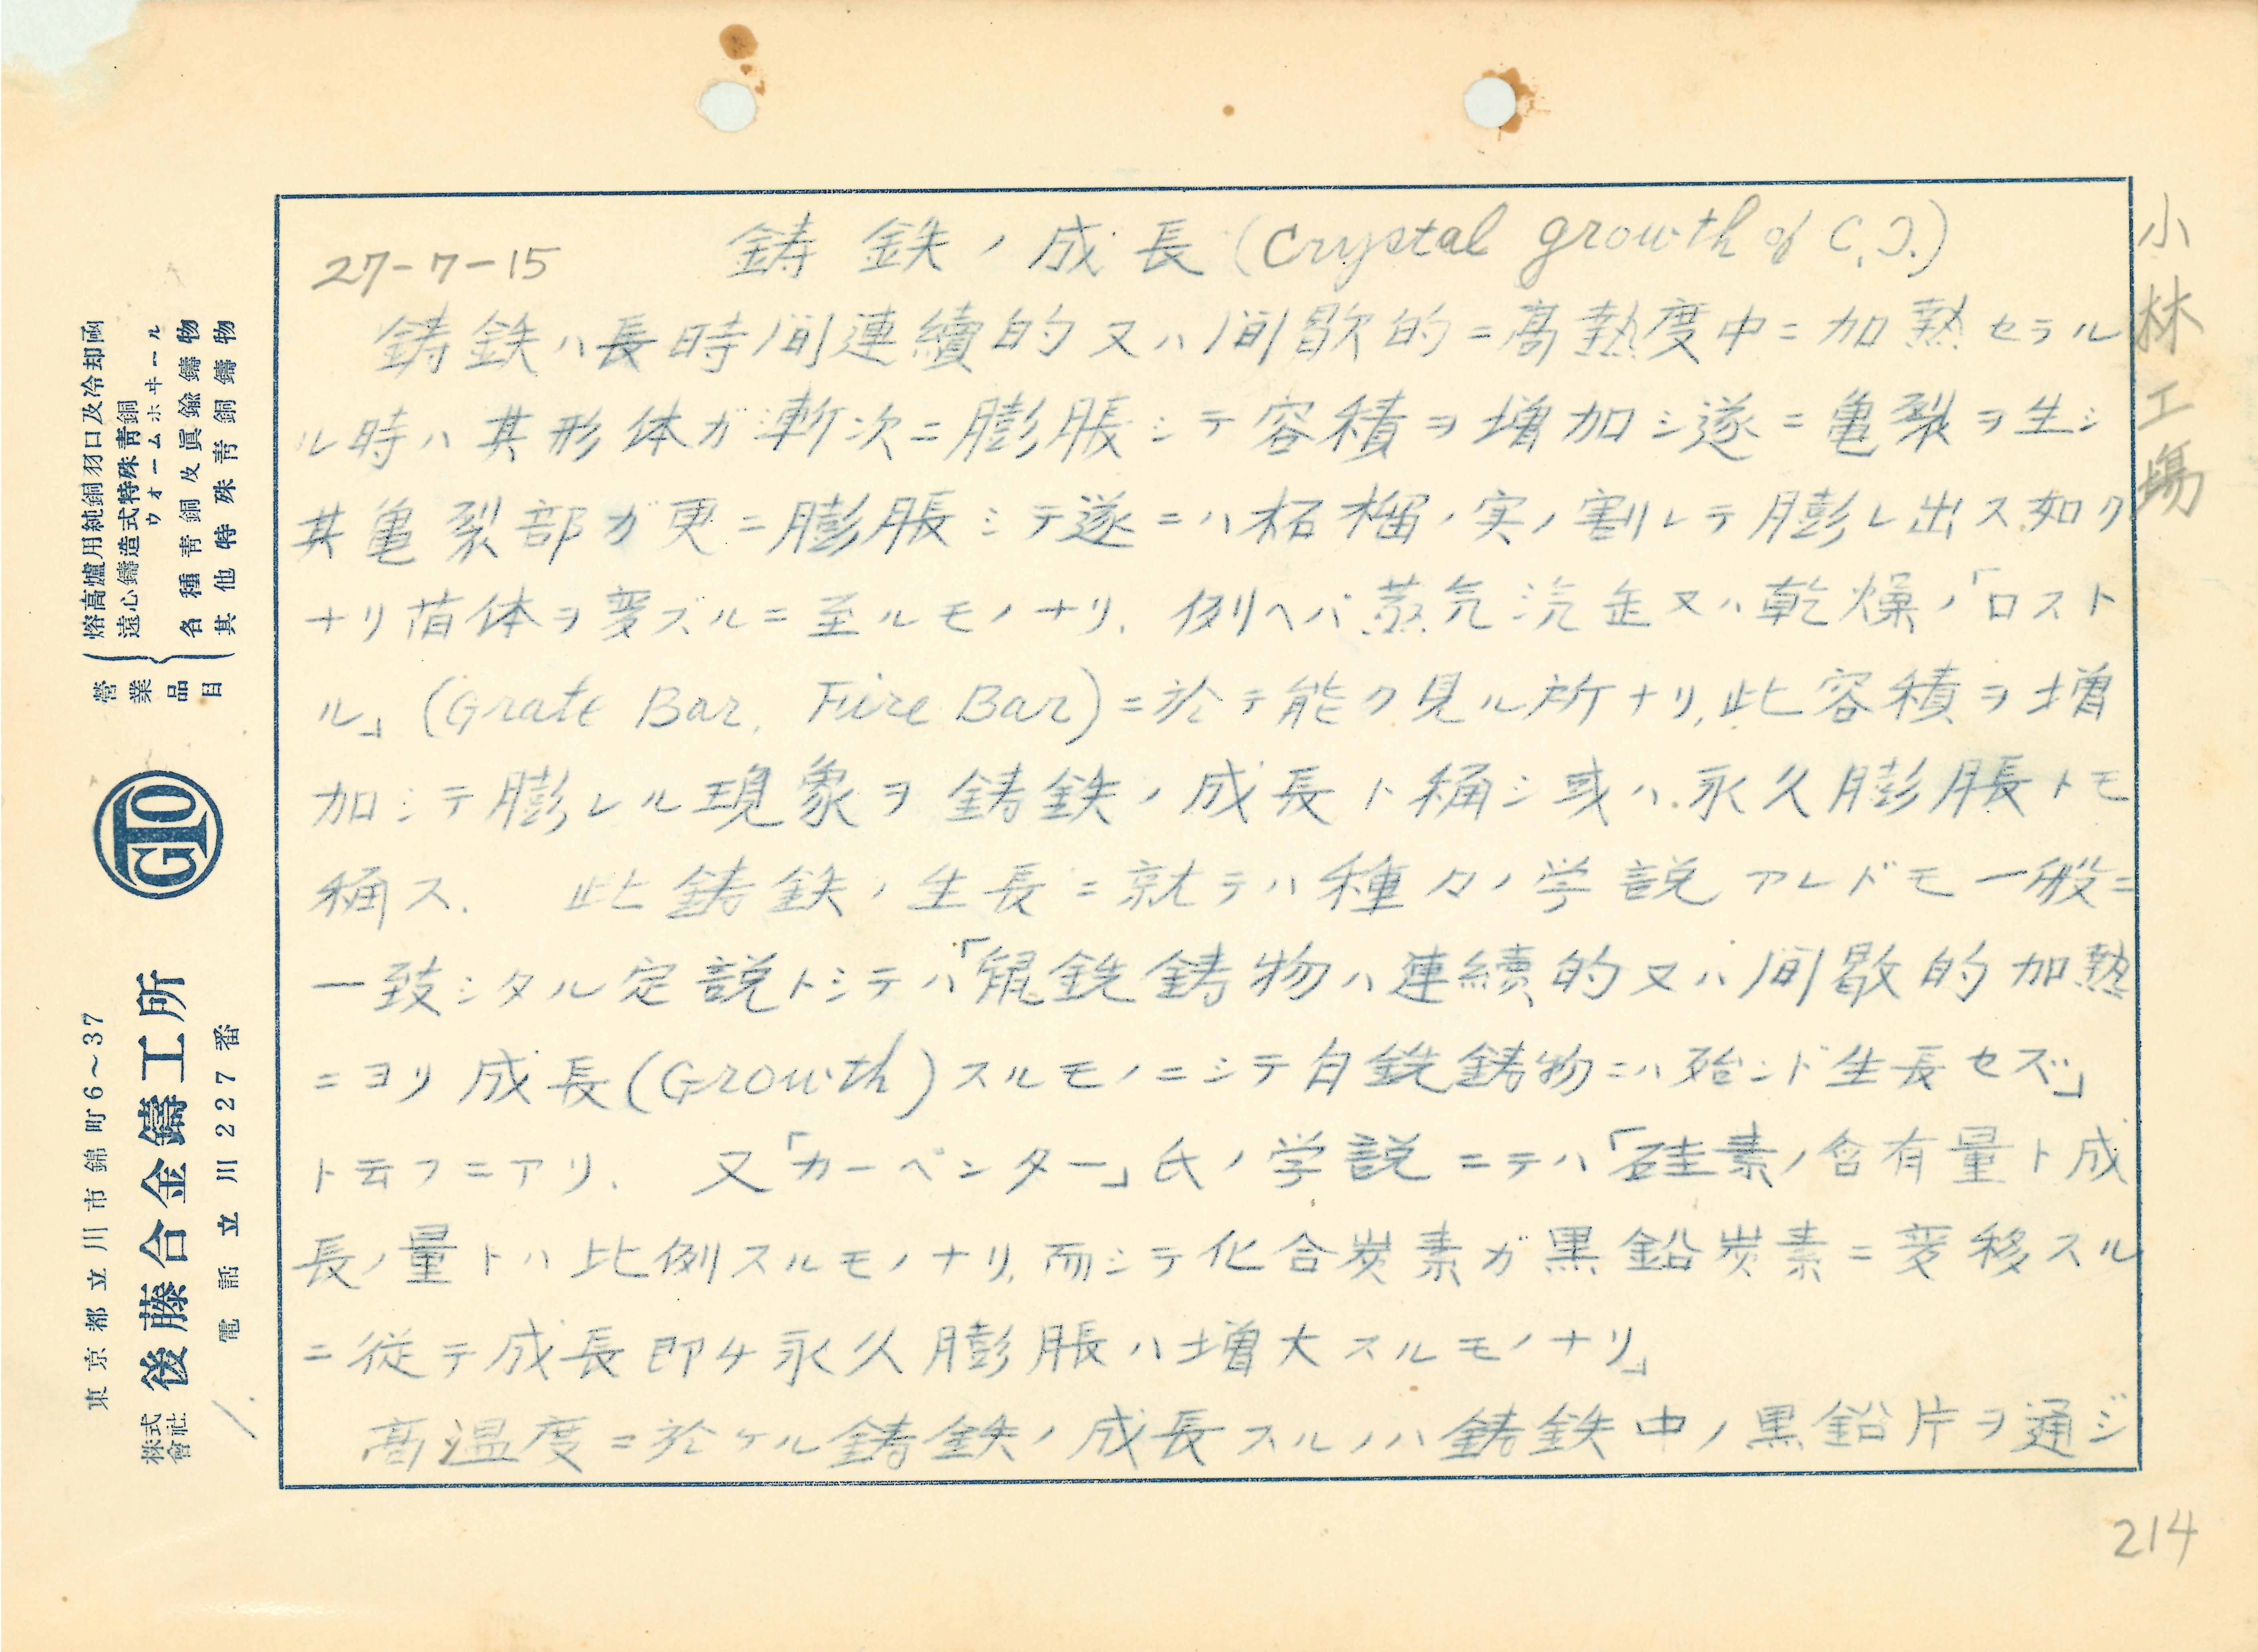 27-7-15 鋳鉄ノ成長(Crystal growth of C.I.)
鋳鉄ハ長時間連續的又ハ間歇的ニ高熱度中ニ加熱セラル
ル時ハ其形体ガ漸次ニ膨脹シテ容積ヲ増加シ遂ニ亀裂ヲ生シ
其亀裂部ガ更ニ膨脹シテ遂ニハ柘榴ノ実ノ割レテ膨レ出ス如ク
ナリ 体ヲ変ズルニ至ルモノナリ、例ヘバ蒸気汽缶又ハ乾燥ノ「ロスト
ル」(Grate Bar, Fire Bar)ニ於テ能ク見ル所ナリ、此容積ヲ増
加シテ膨レル現象ヲ鋳鉄ノ成長ト稱シ或ハ永久膨脹トモ
稱ス. 此鋳鉄ノ生長ニ就テハ種々ノ学説アレドモ一般ニ
一致シタル定説トシテハ「鼠銑鋳物ハ連續的又ハ間歇的加熱
ニヨリ成長(Growth)スルモノニシテ白銑鋳物ニハ殆ンド生長セズ」
ト云フニアリ、 又「カーペンター」氏ノ学説ニテハ「硅素ノ含有量ト成
長ノ量トハ比例スルモノナリ、而シテ化合炭素ガ黒鉛炭素ニ変移スル
ニ従テ成長即チ永久膨脹ハ増大スルモノナリ」
高温度ニ於ケル鋳鉄ノ成長スルノハ鋳鉄中ノ黒鉛片ヲ通ジ
小林工場
214
營業品目
熔高爐用純銅羽口及冷却函
遠心鑄造式特殊青銅
ウォームホヰール
各種青銅及眞鍮鑄物
其他特殊青銅鑄物
GTO
東京都立川市錦町6~37
株式會社 後藤合金鑄工所
電話立川227番
1.